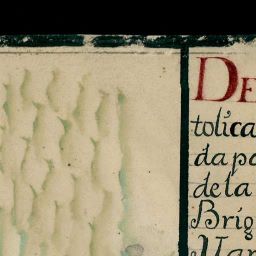 De
tolica
da po
de la
Brig